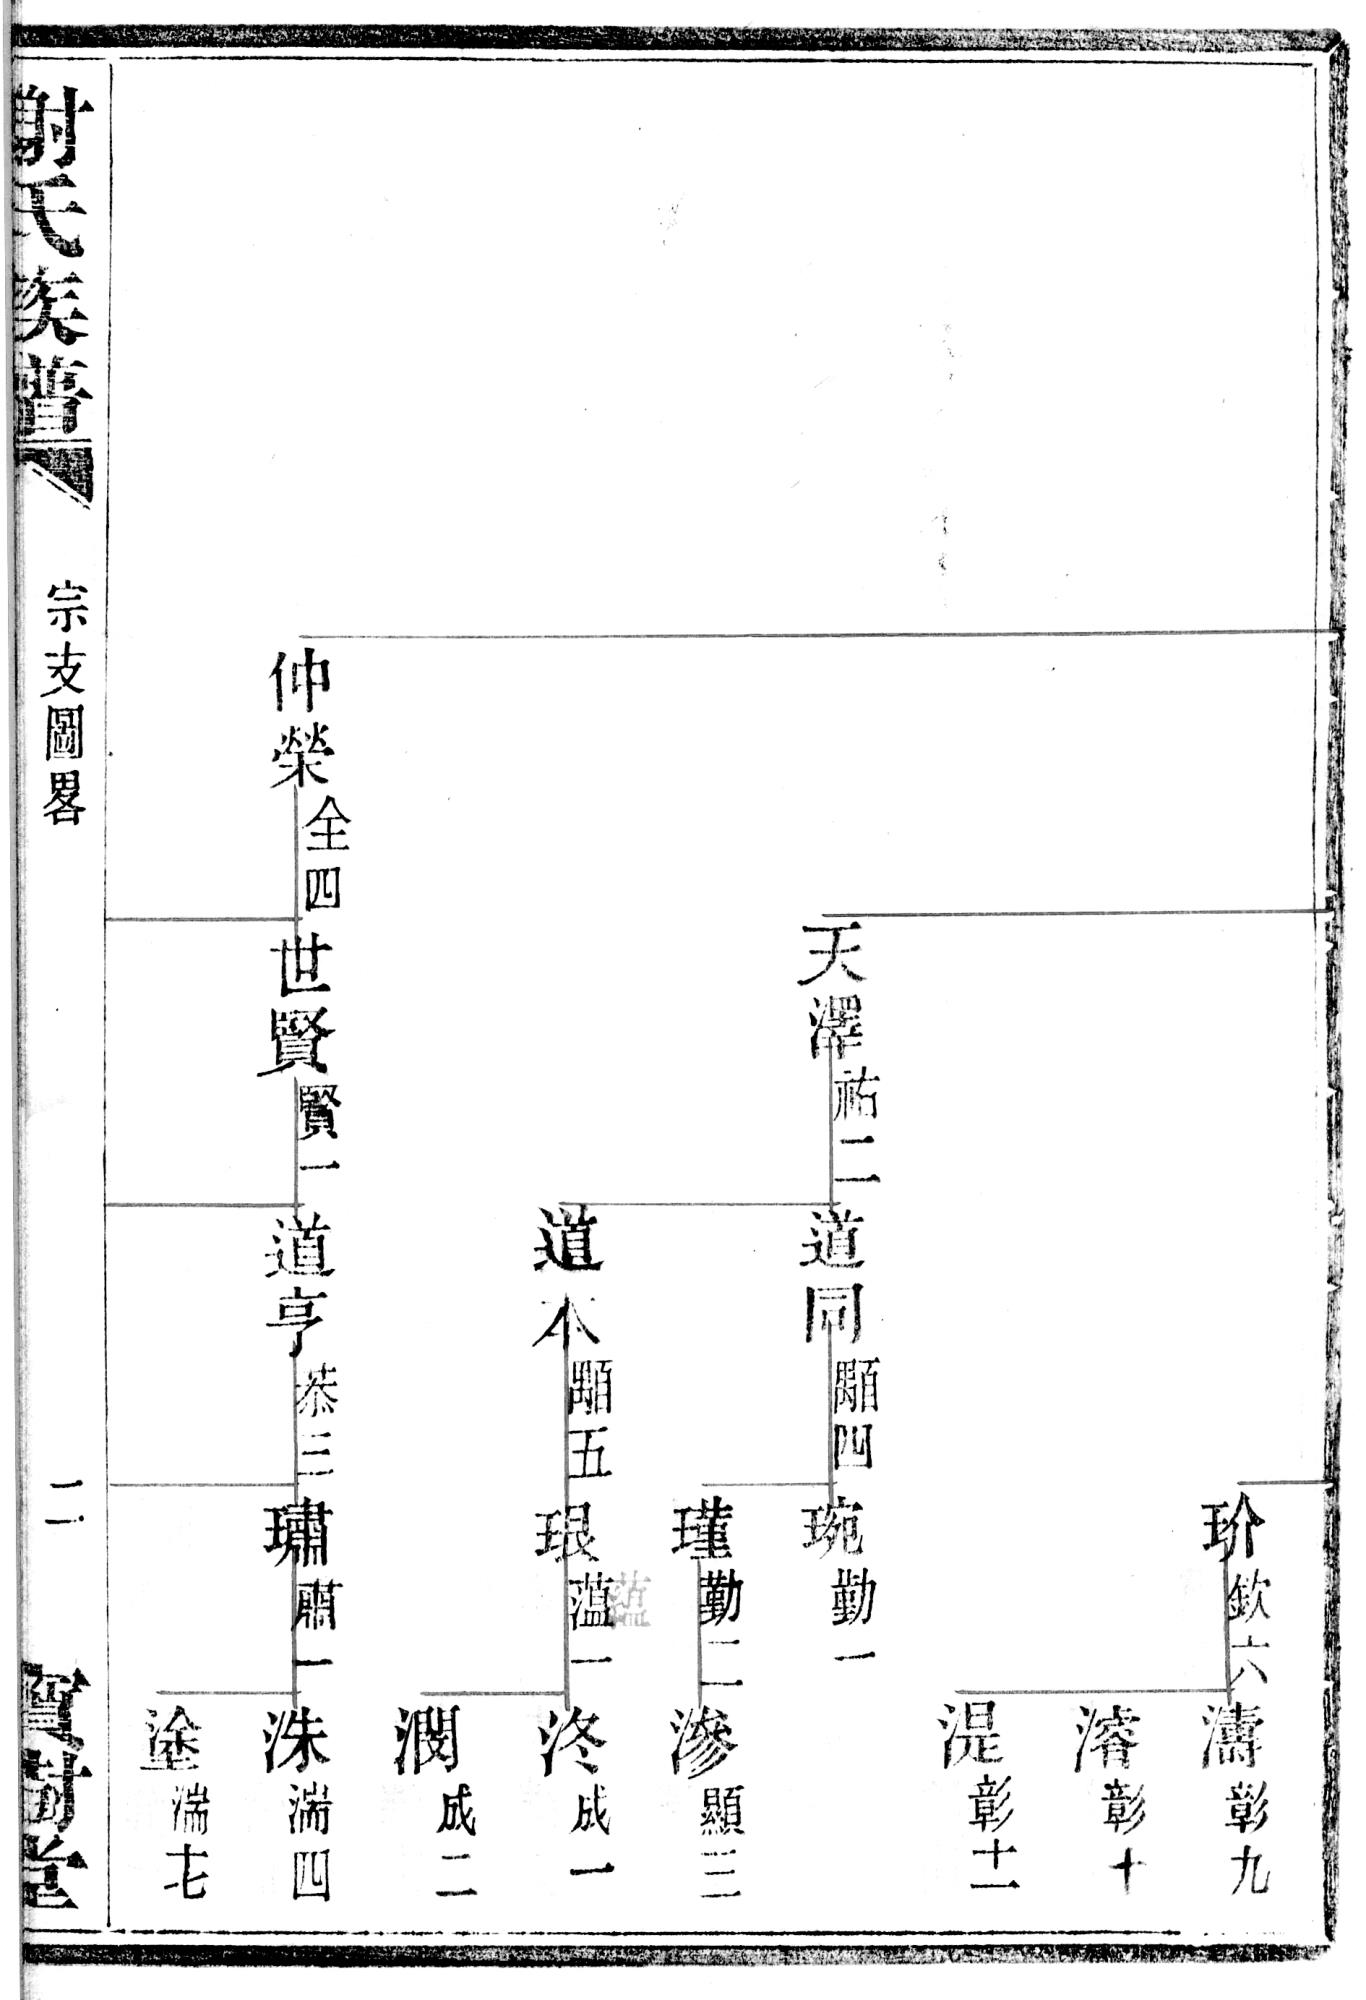 玠 欽六
濤 彰九
濬 彰十
湜 彰十一
天澤 祐二
道同 顒四
琬 勤一
瑾 勤二
滲 顯三
道本 顒五
珢 薀一
洛 成一
潤 成二
仲榮 全四
世賢 賢一
道亨 恭三
璛 肅一
洙 湍四
塗 湍七
謝氏族譜
宗支圖畧
二
寶樹堂